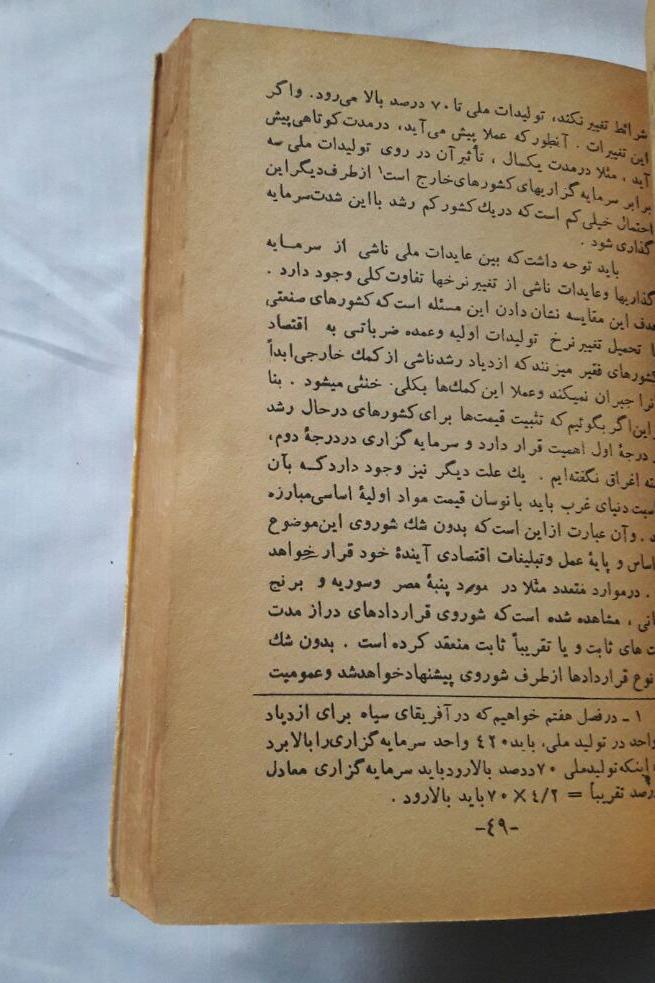 شرائط تغییر نکند، تولیدات ملی تا ۷۰ درصد بالا می‌رود. و اگر
این تغییرات . آنطور که عملا پیش می‌آید، درمدت کوتاهی پیش
آید ، مثلا درمدت یکسال ، تأثیرآن در روی تولیدات ملی سه
برابر سرمایه گزاریهای کشورهای خارج است۱ ازطرف دیگر این
احتمال خیلی کم است که دریك کشور کم رشد با این شدت سرمایه
گذاری شود .
باید توجه داشت که بین عایدات ملی ناشی از سرمــایه
گذاریها وعایدات ناشی از تغییر نرخها تفاوت کلی وجود دارد .
هدف این مقایسه نشان دادن این مسئله است که کشورهای صنعتی
با تحمیل تغییر نرخ تولیدات اولیه وعمده ضرباتی به اقتصاد
کشورهای فقیر میزنند که ازدیاد رشد ناشی از کمك خارجی ابداً
آنرا جبران نمیکند وعملا این کمك‌ها بکلی. خنثی میشود . بنا
براین اگر بگوئیم که تثبیت قیمت‌ها برای کشورهای درحال رشد
درجهٔ اول اهمیت قرار دارد و سرمایه گزاری دردرجهٔ دوم،
اغراق نگفته‌ایم . یك علت دیگر نیز وجود دارد کــه بآن
دنیای غرب باید با نوسان قیمت مواد اولیهٔ اساسی مبارزه
. وآن عبارت ازاین است که بدون شك، شوروی این موضوع
اساس و پایهٔ عمل وتبلیغات اقتصادی آیندهٔ خود قرار خواهد
. درموارد متعدد مثلا در مورد پنبهٔ مصر وسوریه و برنج
، مشاهده شده است که شوروی قراردادهای دراز مدت
های ثابت و یا تقریباً ثابت منعقد کرده است . بدون شك
نوع قراردادها ازطرف شوروی پیشنهاد خواهد شد وعمومیت
۱ ـ درفصل هفتم خواهیم که در آفریقای سیاه برای ازدیاد
واحد در تولید ملی، باید ۴۲۰ واحد سرمایه گزاری را بالا برد
اینکه تولیدملی ۷۰ درصد بالارود باید سرمایه گزاری معادل
درصد تقریباً = ۴/۲ × ۷۰ باید بالارود .
-۴۹-